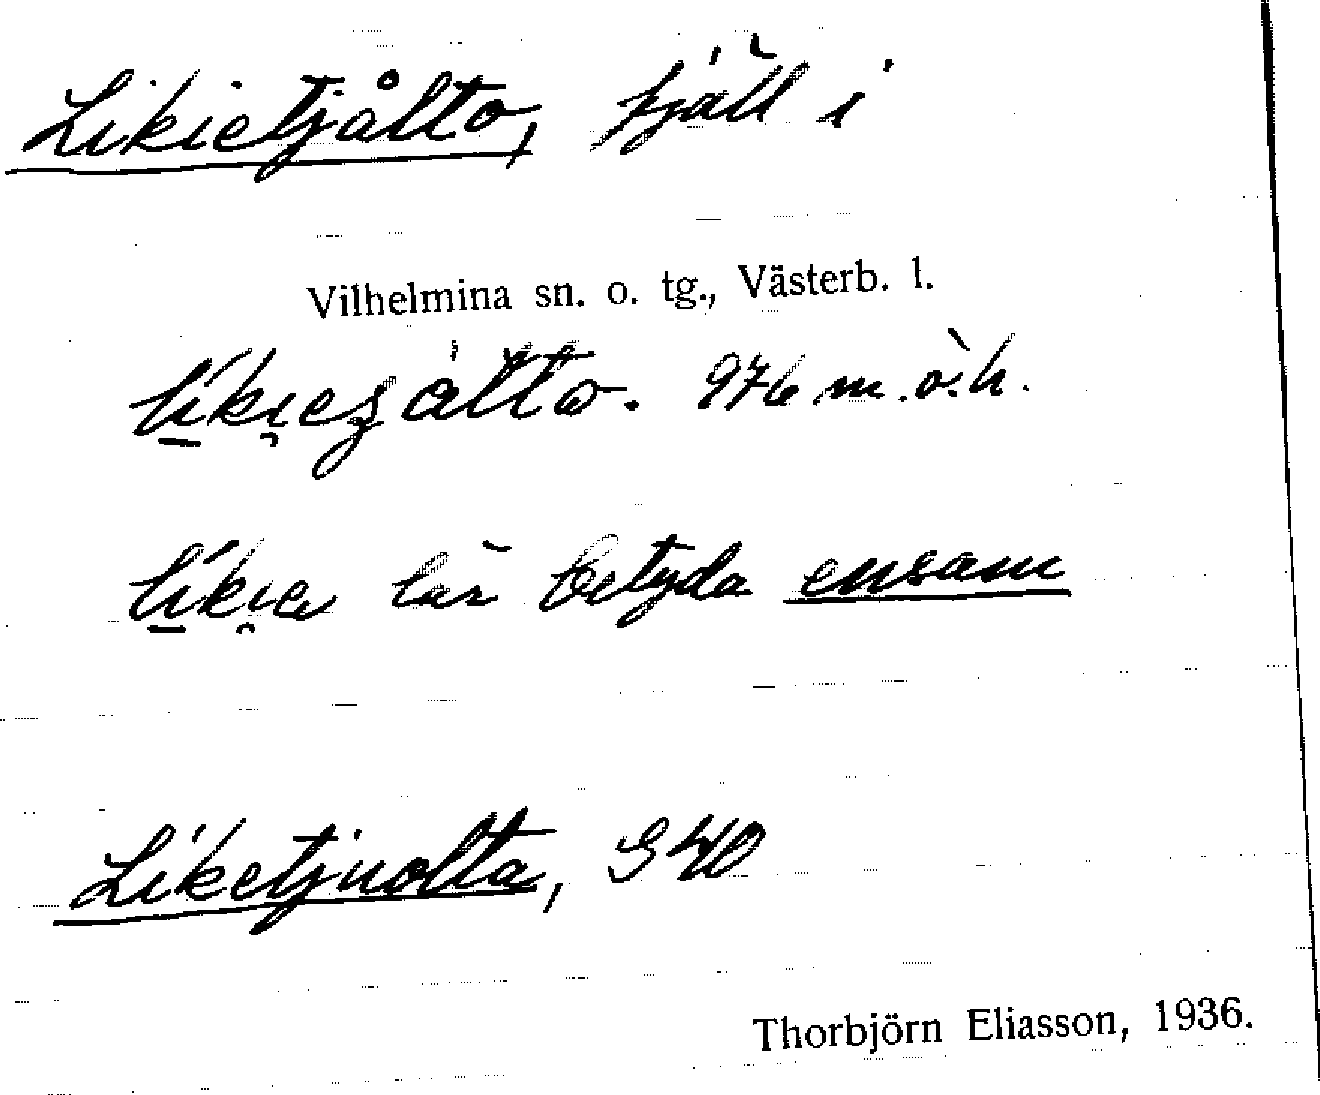 Likietjålto, fjäll i
Vilhelmina sn. o. tg., Västerb. l.
976 m.ö.h.
lär betyda ensam
Liketjuolta, S 40
Thorbjörn Eliasson, 1936.